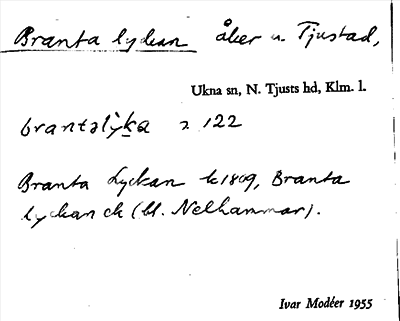 Branta lyckan åker u. Tjustad,
Ukna sn, N. Tjusts hd, Klm. l.
brantalỳka 2 122
Branta Lyckan k1809, Branta
lyckan ck (bl. Nelhammar).
Ivar Modéer 1955